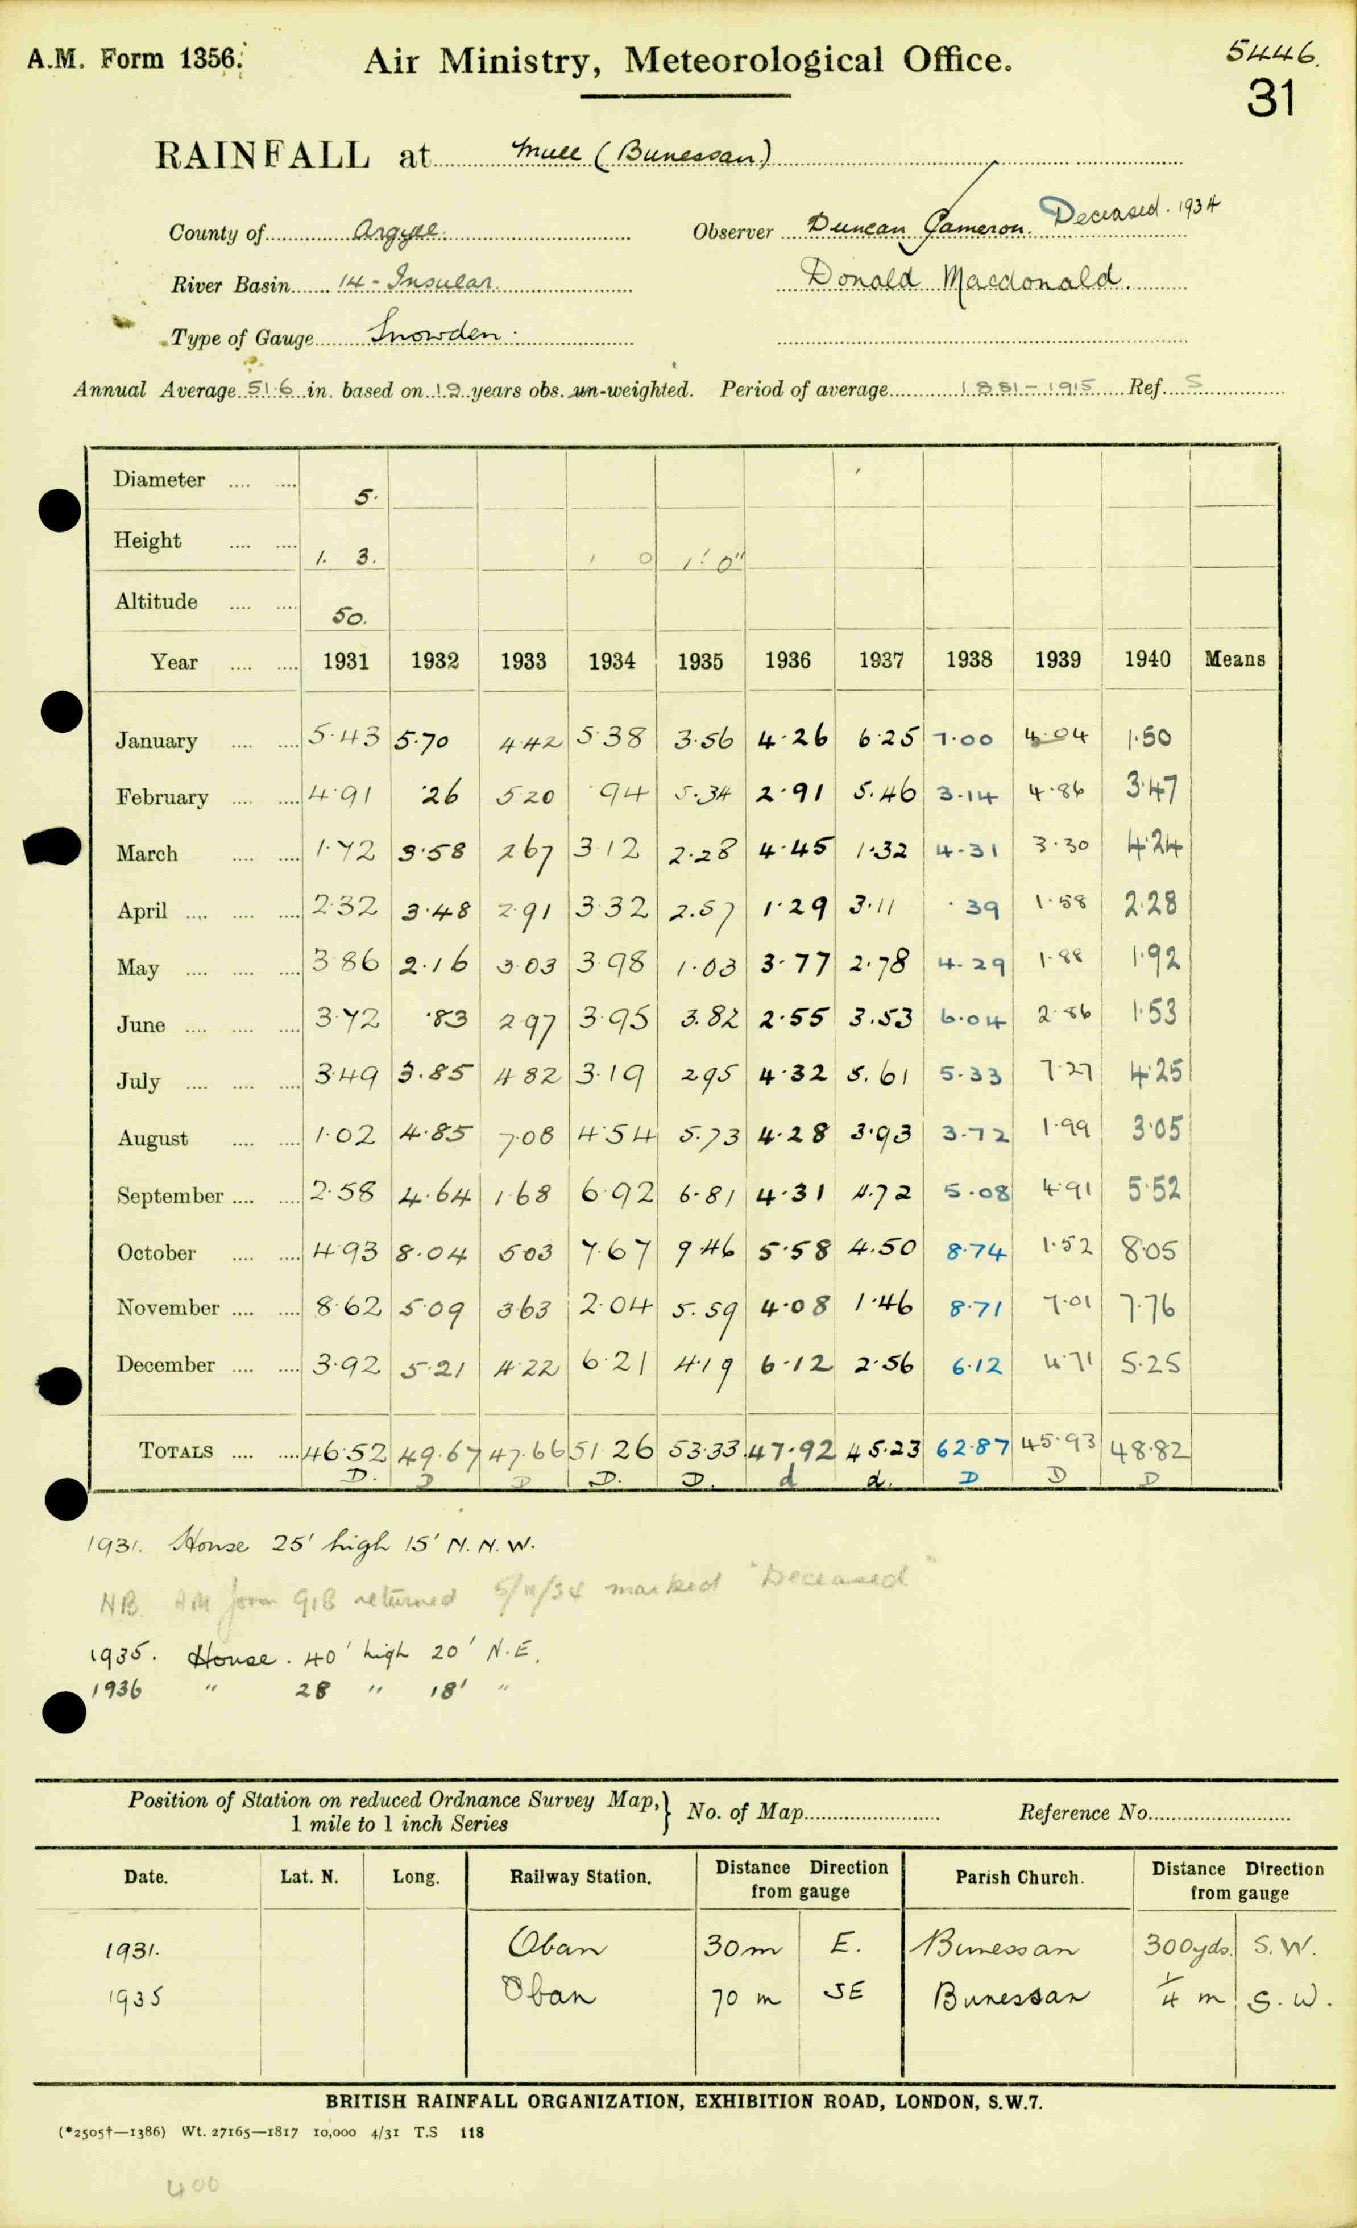 A.M. Form 1356.
Air Ministry, Meteorological Office.
5446.
31
RAINFALL at Mull (Bunessan)
County of Argyll. Observer Duncan Cameron. Deceased. 1934
River Basin 14 - Insular. Donald Macdonald.
Type of Gauge Snowden.
Annual Average 51.6 in. based on 19 years obs. un-weighted. Period of average 1881-1915 Ref. S
Diameter .... .... 5.
Height .... .... 1. 3. 1 0 1' 0"
Altitude .... .... 50.
Year .... .... 1931 1932 1933 1934 1935 1936 1937 1938 1939 1940 Means
January .... .... 5.43 5.70 4.42 5.38 3.56 4.26 6.25 7.00 4.04 1.50
February .... .... 4.91 .26 5.20 .94 5.34 2.91 5.46 3.14 4.86 3.47
March .... .... 1.72 3.58 2.67 3.12 2.28 4.45 1.32 4.31 3.30 4.24
April .... .... .... 2.32 3.48 2.91 3.32 2.57 1.29 3.11 .39 1.58 2.28
May .... .... .... 3.86 2.16 3.03 3.98 1.03 3.77 2.78 4.29 1.88 1.92
June .... .... .... 3.72 .83 2.97 3.95 3.82 2.55 3.53 6.04 2.86 1.53
July .... .... .... 3.49 3.85 4.82 3.19 2.95 4.32 5.61 5.33 7.27 4.25
August .... .... 1.02 4.85 7.08 4.54 5.73 4.28 3.93 3.72 1.99 3.05
September .... .... 2.58 4.64 1.68 6.92 6.81 4.31 4.72 5.08 4.91 5.52
October .... .... 4.93 8.04 5.03 7.67 9.46 5.58 4.50 8.74 1.52 8.05
November .... .... 8.62 5.09 3.63 2.04 5.59 4.08 1.46 8.71 7.01 7.76
December .... .... 3.92 5.21 4.22 6.21 4.19 6.12 2.56 6.12 4.71 5.25
TOTALS .... .... 46.52 49.67 47.66 51.26 53.33 47.92 45.23 62.87 45.93 48.82
D. D D D. D. d d. D D D
1931. House 25' high 15' N.N.W.
NB. AM form 918 returned 5/11/34 marked "Deceased"
1935. House. 40' high 20' N.E.
1936 " 28 " 18' "
Position of Station on reduced Ordnance Survey Map,} No. of Map Reference No.
1 mile to 1 inch Series
Date. Lat. N. Long. Railway Station. Distance Direction from gauge Parish Church. Distance Direction from gauge
1931. Oban 30 m E. Bunessan 300 yds. S.W.
1935 Oban 70 m SE Bunessan 1/4 m S.W.
BRITISH RAINFALL ORGANIZATION, EXHIBITION ROAD, LONDON, S.W.7.
(*2505†—1386) Wt. 27165—1817 10,000 4/31 T.S 118
400